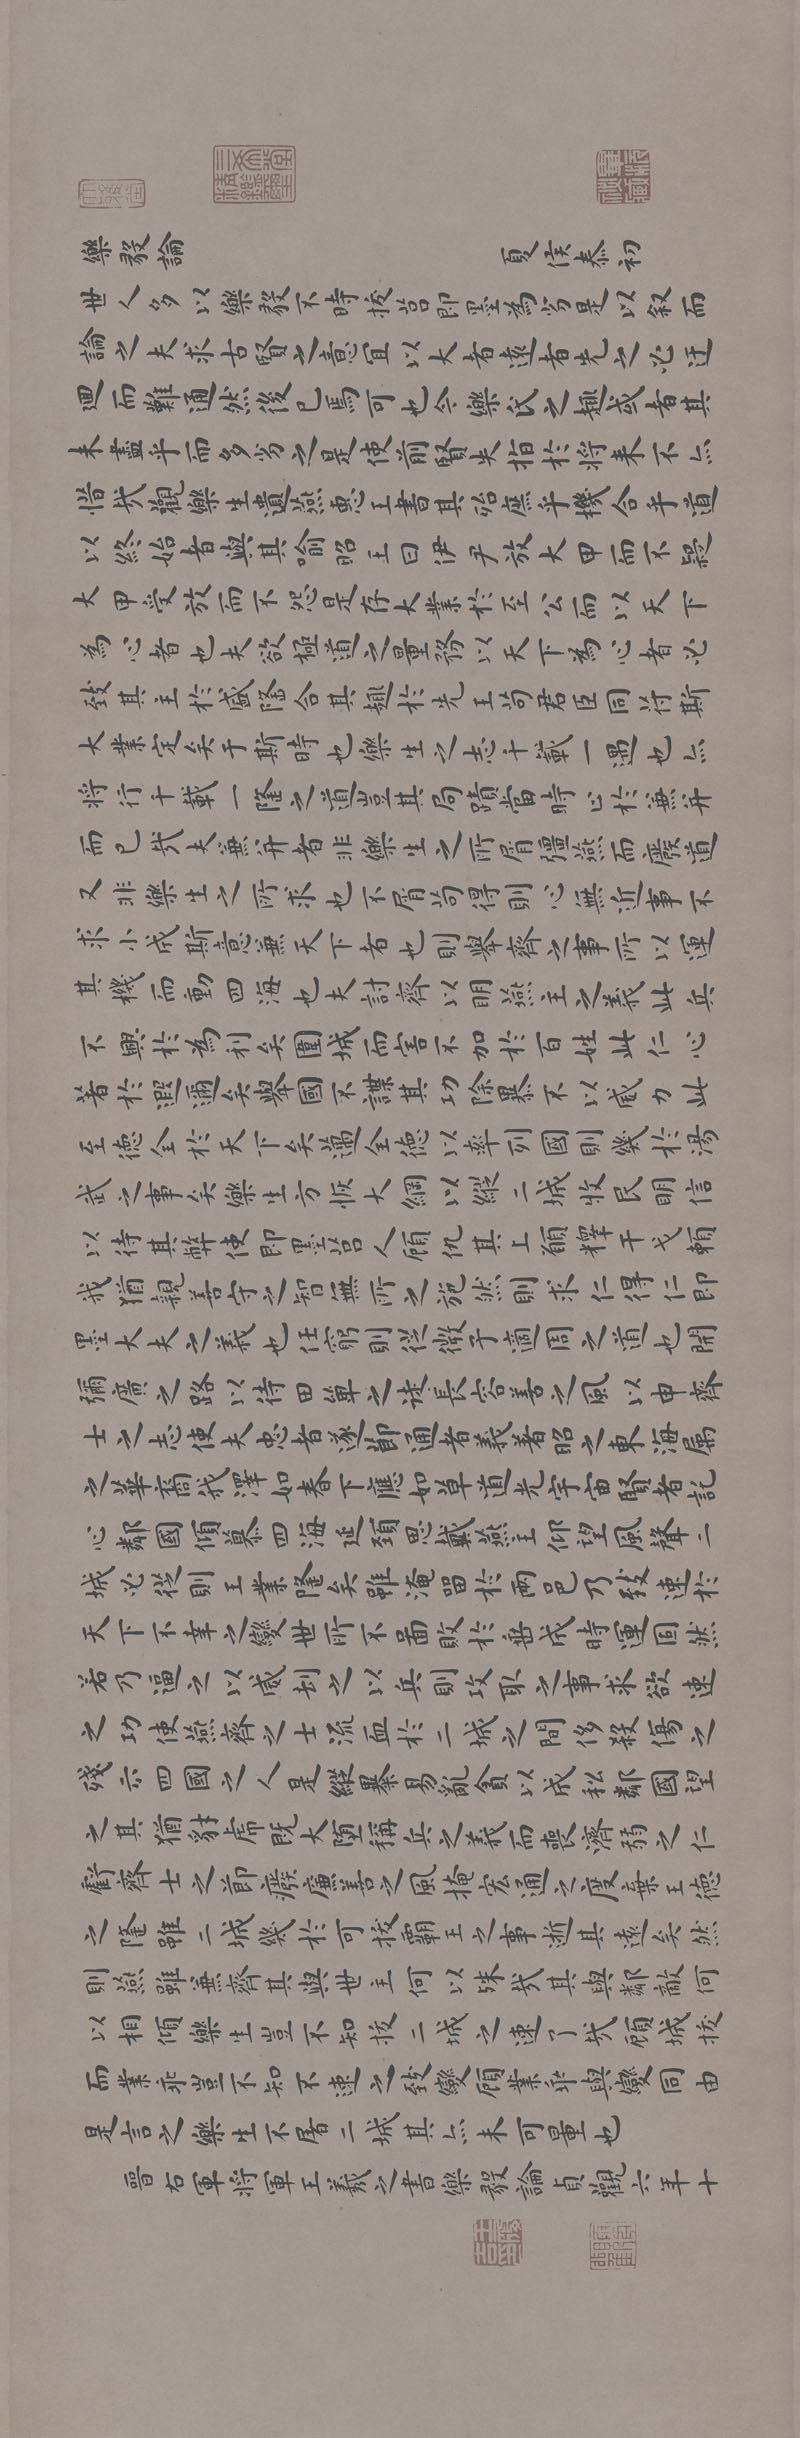 三希堂精鑑璽
樂毅論　夏侯泰初
世人多以樂毅不時拔莒即墨為劣是以叙而
論之夫求古賢之意宜以大者遠者先之必迂
迴而難通然後已焉可也今樂氏之趣或者其
未盡乎而多劣之是使前賢失指於將來不亦
惜哉觀樂生遺燕惠王書其殆庶乎機合乎道
以終始者與其喻昭王曰伊尹放大甲而不疑
大甲受放而不怨是存大業於至公而以天下
為心者也夫欲極道之量務以天下為心者必
致其主於盛隆合其趣於先王苟君臣同符斯
大業定矣于斯時也樂生之志千載一遇也亦
將行千載一隆之道豈其局蹟當時止於兼并
而已哉夫兼并者非樂生之所屑彊燕而廢道
又非樂生之所求也不屑苟得則心無近事不
求小成斯意兼天下者也則舉齊之事所以運
其機而動四海也夫討齊以明燕主之義此兵
不興於為利矣圍城而害不加於百姓此仁心
著於遐邇矣舉國不謀其功除暴不以威力此
至德全於天下矣邁全德以率列國則幾於湯
武之事矣樂生方恢大綱以縱二城牧民明信
以待其弊使即墨莒人顧仇其上願釋干戈賴
我猶親善守之智無所之施然則求仁得仁即
墨大夫之義也任窮則從微子適周之道也開
彌廣之路以待田單之徒長容善之風以申齊
士之志使夫忠者遂節通者義著昭之東海屬
之華裔我澤如春下應如草道光宇宙賢者託
心鄰國傾慕四海延頸思戴燕主仰望風聲二
城必從則王業隆矣雖淹留於兩邑乃致速於
天下不幸之變世所不啚敗於垂成時運固然
若乃逼之以威劫之以兵則攻取之事求欲速
之功使燕齊之士流血於二城之間侈殺傷之
殘示四國之人是縱暴易亂貪以成私鄰國望
之其猶豺虎既大墮稱兵之義而喪濟弱之仁
虧齊士之節癈廉善之風掩宏通之度棄王德
之隆雖二城幾於可拔霸王之事逝其遠矣然
則燕雖兼齊其與世主何以殊哉其與鄰敵何
以相傾樂生豈不知拔二城之速了哉顧城拔
而業乖豈不知不速之致變顧業乖與變同由
是言之樂生不屠二城其亦未可量也
晉右軍將軍王羲之書樂毅論貞觀六年十